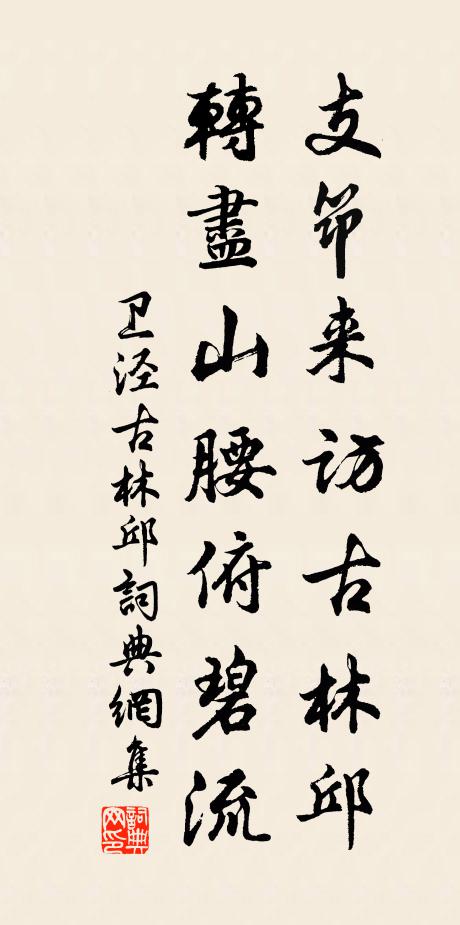 支筇来访古林邱
轉盡山腰俯碧流
卫泾古林邱詞典網集
詞典网印